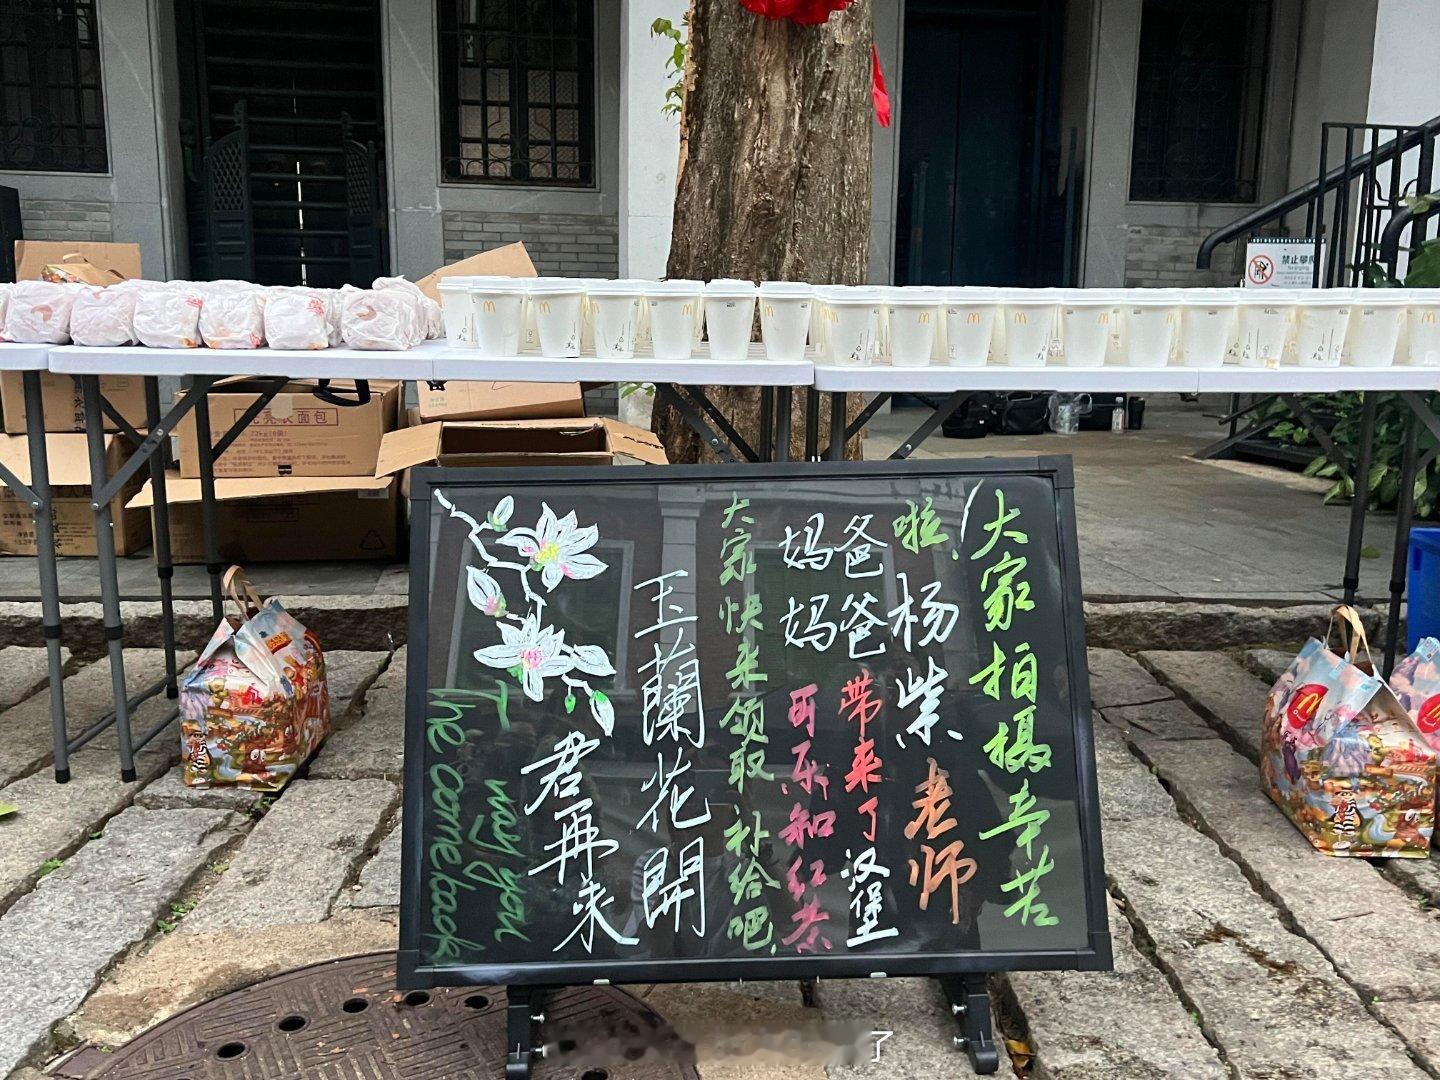 大家拍摄辛苦
啦、杨紫老师
爸爸带来了汉堡
妈妈可乐和红茶
大家快来领取补给吧
玉蘭花開
君再来
T way you
The come back
禁止攀爬
面包
了